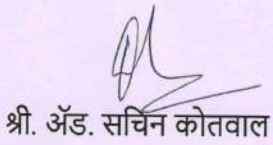 श्री. ॲड. सचिन कोतवाल